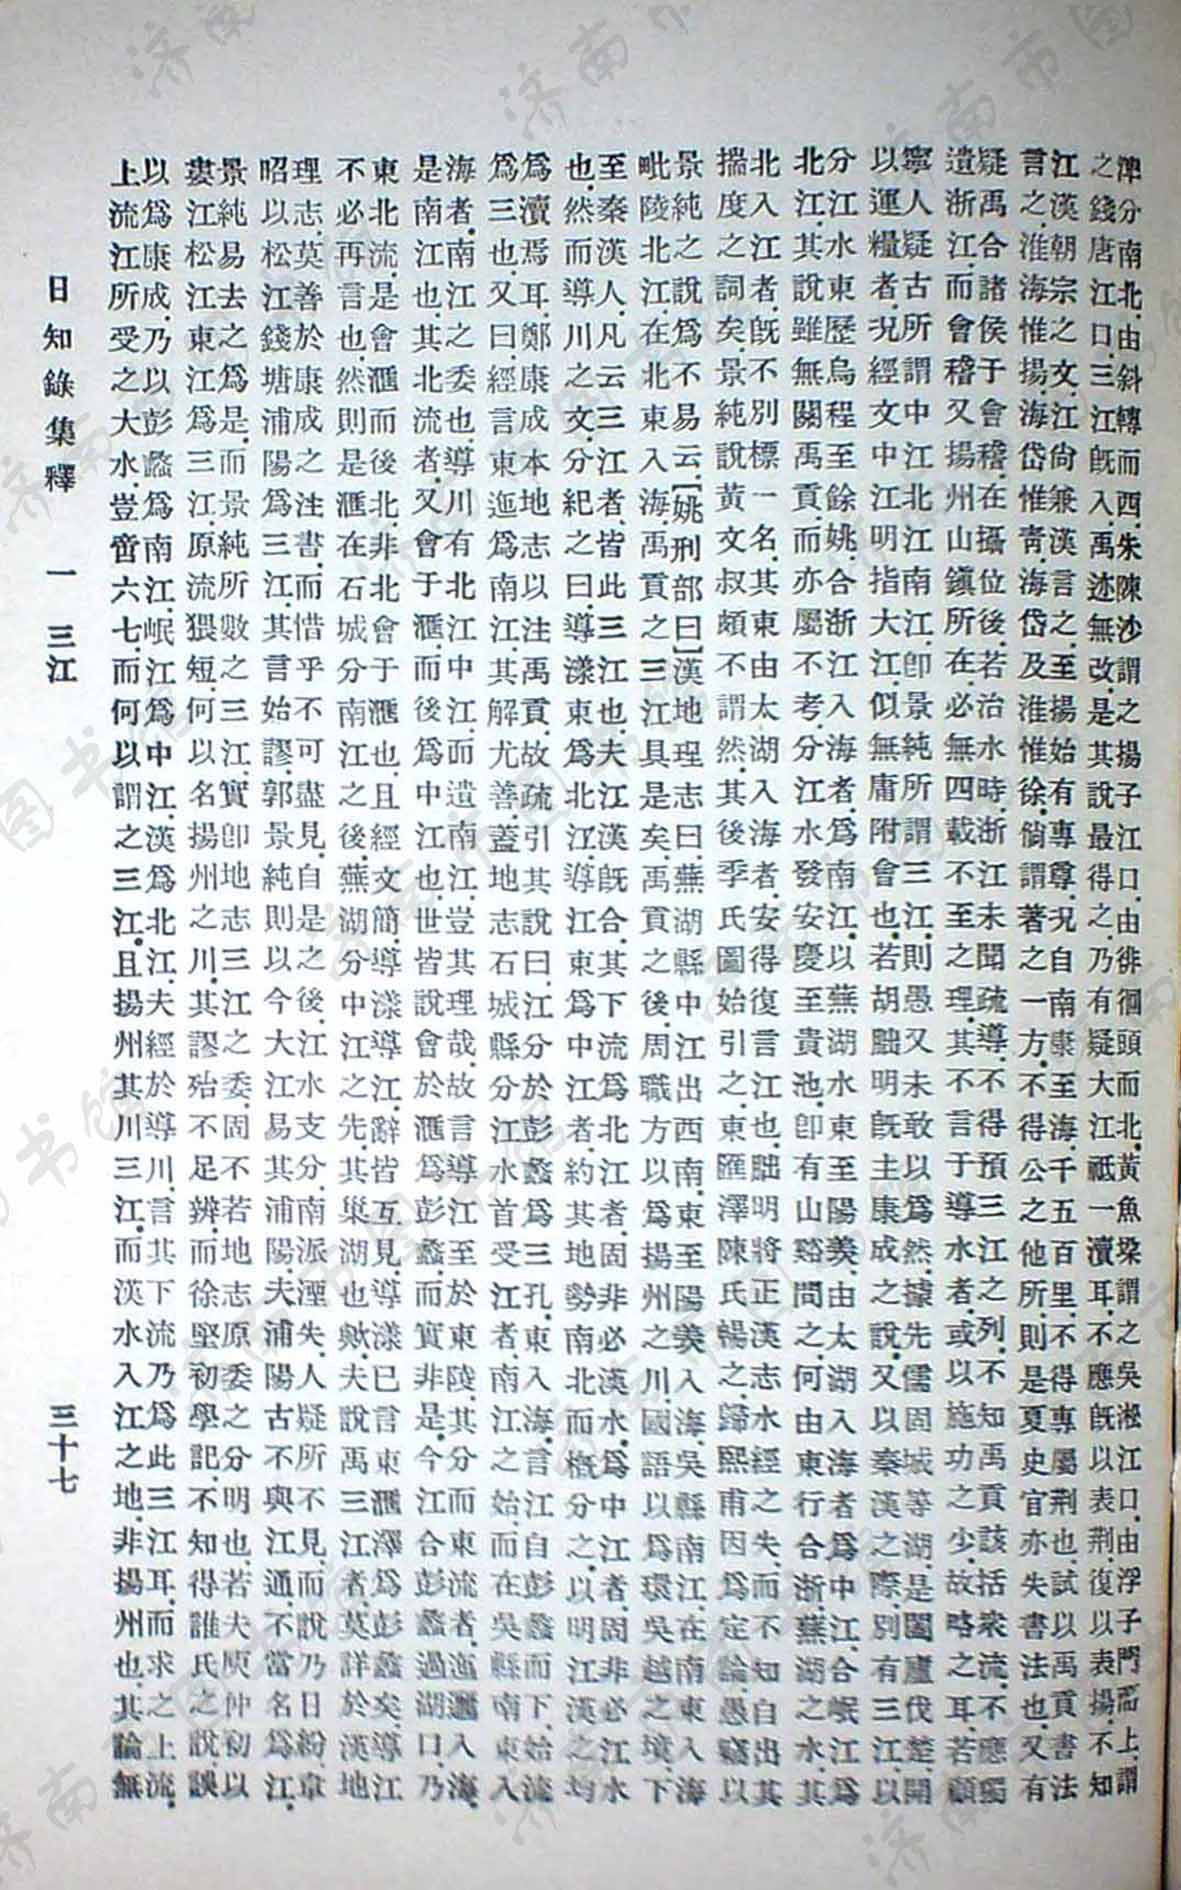 潬分南北.由斜轉而西.朱陳沙謂之揚子江口.由徘徊頭而北.黃魚梁謂之吳淞江口.由浮子門而上.謂
之錢唐江口.三江既入.禹迹無改.是其說最得之.乃有疑大江祇一瀆耳.不應既以表荊.復以表揚.不知
江漢朝宗之文.江尙兼漢言之.至揚始有專尊.況自南隸至海.千五百里.不得專屬荊也.試以禹貢書法
言之.淮海惟揚.海岱惟靑.海岱及淮惟徐.倘謂著之一方.不得公之他所.則是夏史官亦失書法也.又有
疑禹合諸侯于會稽.在攝位後.若治水時.浙江未聞疏導.不得預三江之列.不知禹貢該括衆流.不應獨
遺浙江.而會稽又揚州山鎮所在.必無四載不至之理.其不言于導水者.或以施功之少.故略之耳.若顧
寧人疑古所謂中江北江南江.卽景純所謂三江.則愚又未敢以爲然.據先儒固城等湖.是闔廬伐楚開
以運糧者.況經文中江明指大江.似無庸附會也.若胡朏明既主康成之說.又以秦漢之際.別有三江.以
分江水東歷烏程至餘姚合浙江入海者.爲南江.以蕪湖水東至陽羨由太湖入海者爲中江.合岷江爲
北江.其說雖無關禹貢.而亦屬不考.分江水發安慶至貴池.卽有山谿間之.何由東行合浙.蕪湖之水.其
北入江者.既不別標一名.其東由太湖入海者.安得復言江也.朏明將正漢志水經之失.而不知自出其
揣度之詞矣.景純說黃文叔頗不謂然.其後季氏圖始引之.東匯澤陳氏暢之.歸熙甫因爲定論.愚竊以
景純之說爲不易云.[姚刑部曰]漢地理志曰.蕪湖縣中江出西南.東至陽羨入海.吳縣南江在南東入海
毗陵北江在北東入海.禹貢之三江具是矣.禹貢之後.周職方以爲揚州之川.國語以爲環吳越之境.下
至秦漢人.凡云三江者.皆此三江也.夫江漢既合.其下流爲北江者.固非必漢水.爲中江者.固非必江水
也.然而導川之文.分紀之曰.導漾東爲北江.導江東爲中江者.約其地勢南北而概分之.以明江漢之均
爲瀆焉耳.鄭康成本地志以注禹貢.故疏引其說曰.江分於彭蠡爲三孔.東入海.言江自彭蠡而下.始流
爲三也.又曰.經言東迤爲南江.其解尤善.蓋地志石城縣分江水首受江者.南江之始而在吳縣南東入
海者.南江之委也.導川有北江中江.而遺南江.豈其理哉.故言導江至於東陵.其分而東流者.迤邐入海.
是南江也.其北流者.又會于滙.而後爲中江也.世皆說會於滙爲彭蠡.而實非是.今江合彭蠡過湖口.乃
東北流.是會滙而後北.非北會于滙也.且經文簡.導漾導江.辭皆互見.導漾已言東滙澤爲彭蠡矣.導江
不必再言也.然則是滙在石城分南江之後.蕪湖分中江之先.其巢湖也歟.夫說禹三江者.莫詳於漢地
理志.莫善於康成之注書.而惜乎不可盡見.自是之後.江水支分.南派湮失.人疑所不見.而說乃日紛.韋
昭以松江錢塘浦陽爲三江.其言始謬.郭景純則以今大江易其浦陽.夫浦陽古不與江通.不當名爲江.
景純易去之爲是.而景純所數之三江.實卽地志三江之委.固不若地志原委之分明也.若夫庾仲初以
婁江松江東江爲三江.原流猥短.何以名揚州之川.其謬殆不足辨.而徐堅初學記.不知得誰氏之說.誤
以爲康成.乃以彭蠡爲南江.岷江爲中江.漢爲北江.夫經於導川.言其下流乃爲此三江耳.而求之上流.
上流江所受之大水.豈啻六七.而何以謂之三江.且揚州其川三江.而漢水入江之地.非揚州也.其論無
日知錄集釋 一 三江 三十七